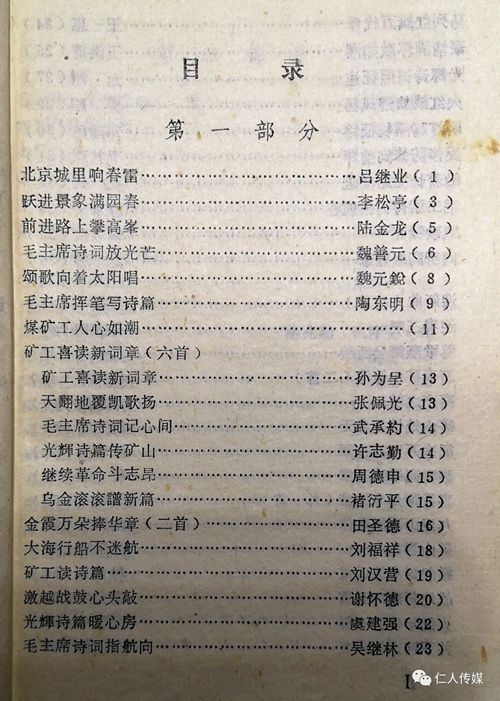 目　录
第一部分
北京城里响春雷……吕继业（1）
跃进景象满园春……李松亭（3）
前进路上攀高峯……陆金龙（5）
毛主席诗词放光芒……魏善元（6）
颂歌向着太阳唱……魏元銳（8）
毛主席挥笔写诗篇……陶东明（9）
煤矿工人心如潮……（11）
矿工喜读新词章（六首）
矿工喜读新词章……孙为呈（13）
天翻地覆凯歌扬……张佩光（13）
毛主席诗词记心间……武承約（14）
光輝诗篇传矿山……许志勤（14）
继续革命斗志昂……周德申（15）
乌金滚滚譜新篇……褚衍平（15）
金霞万朵捧华章（二首）……田圣德（16）
大海行船不迷航……刘福祥（18）
矿工读诗篇……刘汉营（19）
激越战鼓心头敲……谢怀德（20）
光輝诗篇暖心房……虞建强（22）
毛主席诗词指航向……吴继林（23）
1
仁人传媒